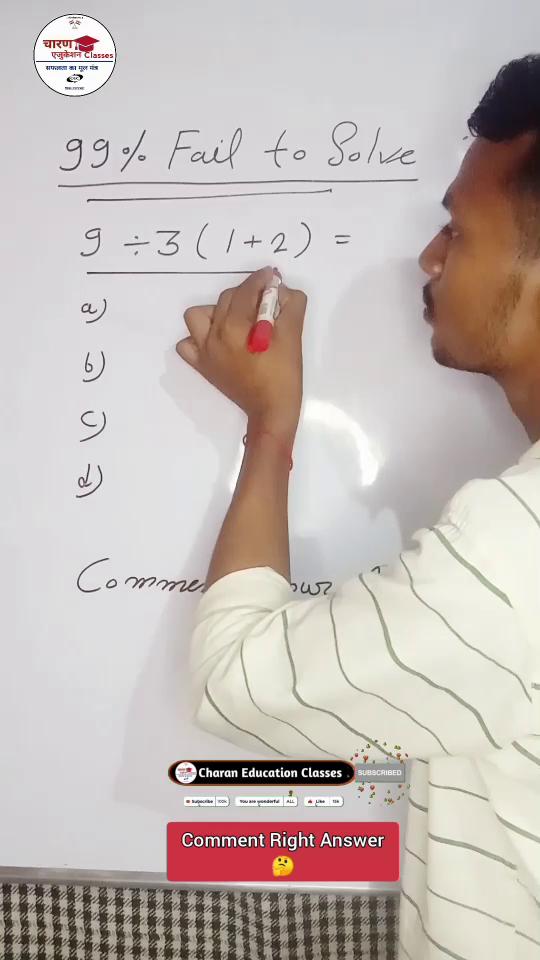 चारण
एजुकेशन Classes
सफलता का मूल मंत्र
99% Fail to Solve
9 ÷ 3 ( 1 + 2 ) =
a)
b)
c)
d)
Charan Education Classes
SUBSCRIBED
Subscribe 100k You are wonderful ALL Like
Comment Right Answer